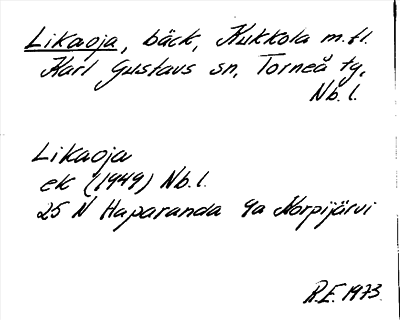 Likaoja, bäck, Kukkola m.fl.
Karl Gustavs sn, Torneå tg,
Nb.l.
Likaoja
ek (1949) Nb.l.
25 N Haparanda 9a Norpijärvi
R.E. 1973.